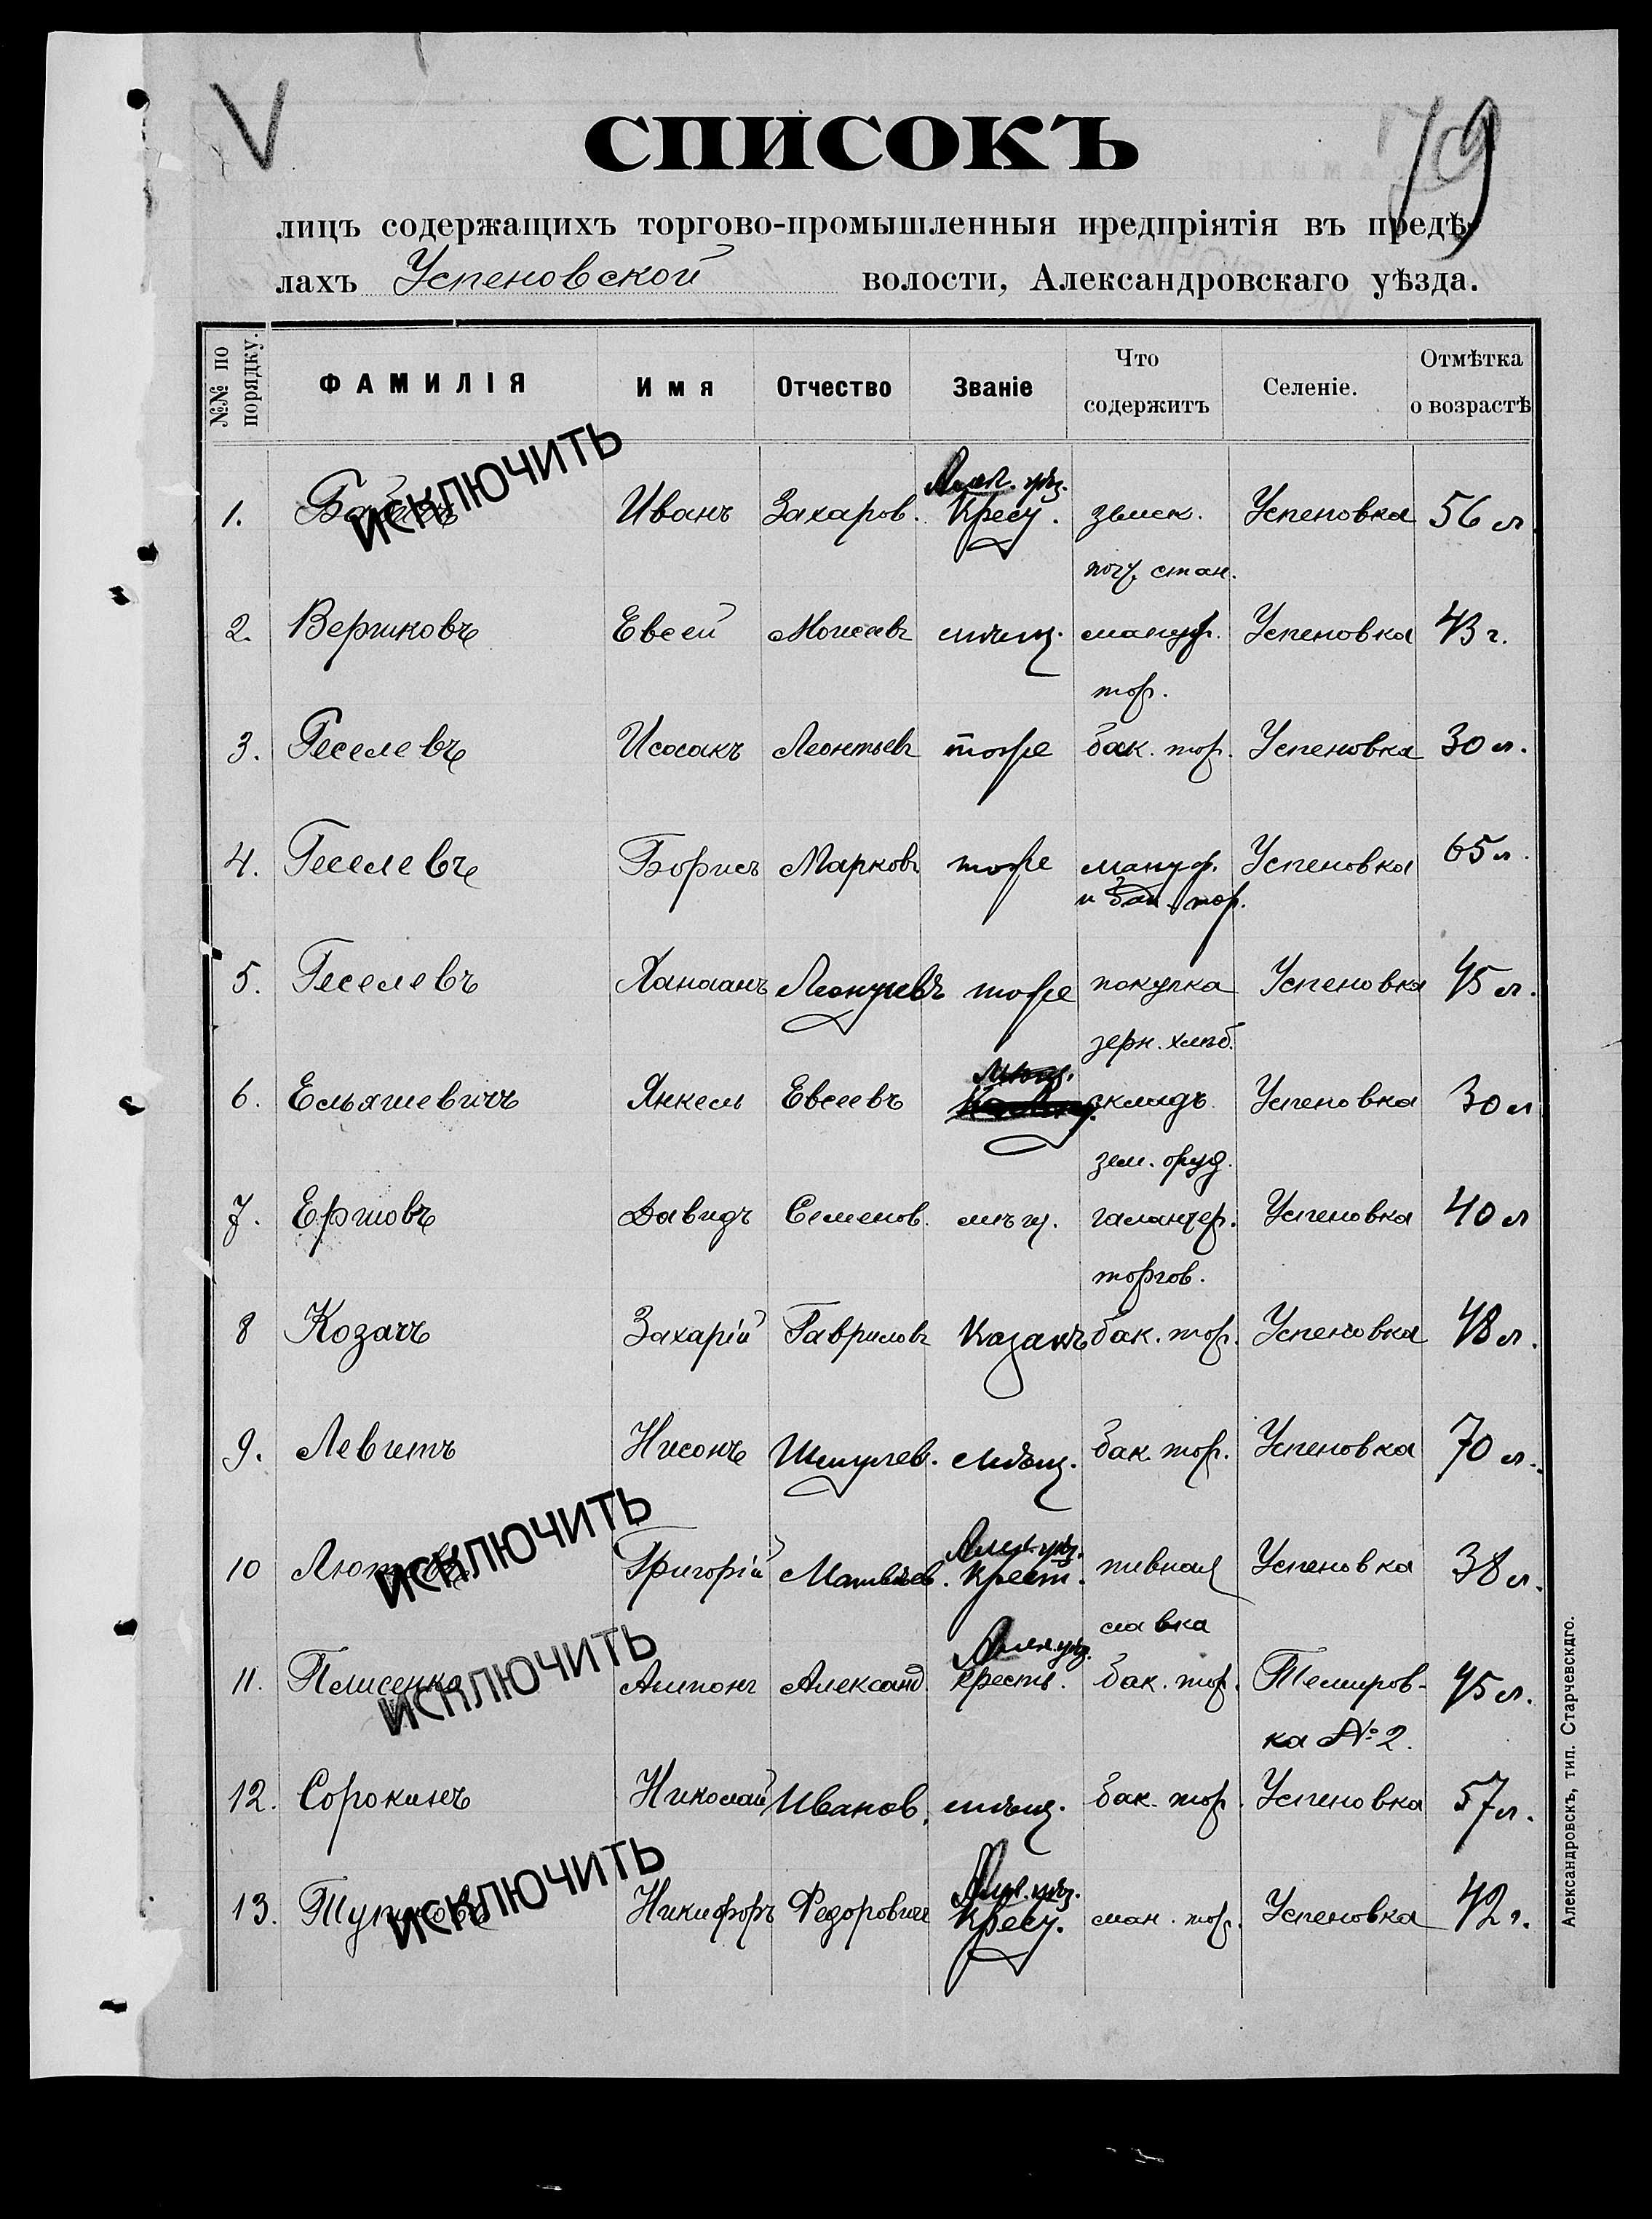 V
79
СПИСОКЪ
лицъ содержащихъ торгово-промышленныя предпріятія въ предѣ-
лахъ Успеновской волости, Александровскаго уѣзда.
№№ по порядку. ФАМИЛІЯ Имя Отчество Званіе Что содержитъ Селеніе. Отмѣтка о возрастѣ
ИСКЛЮЧИТЬ
Алек. уѣз.
1. Иванъ Захаров. Крест. земск. Успеновка 56 л.
почт. стан.
2. Вершковъ Евсей Моисеевъ мѣщ. мануф. Успеновка 43 г.
тор.
3. Геселевъ Исаакъ Леонтьевъ тоже бак. тор. Успеновка 30 л.
4. Геселевъ Борисъ Марковъ тоже мануф. Успеновка 65 л.
и бак. тор.
5. Геселевъ Ханаанъ Леонтьевъ тоже покупка Успеновка 45 л.
зерн. хлѣб.
Мѣщ.
6. Ельяшевичъ Янкель Евсеевъ складъ Успеновка 30 л
зем. оруд.
7. Ершовъ Давидъ Семенов. мѣщ. галантер. Успеновка 40 л
торгов.
8 Козачъ Захарій Гавриловъ Казакъ бак. тор. Успеновка 48 л.
9. Левитъ Нисонъ Шмулев. мѣщ. бак. тор. Успеновка 70 л.
ИСКЛЮЧИТЬ
Алек. уѣз.
10 Григорій Матвѣев. Крест. пивная Успеновка 38 л.
лавка
ИСКЛЮЧИТЬ
Алек. уѣз.
11. Плисенко Антонъ Александ. крестъ. бак. тор. Темиров-
ка № 2. 45 л.
12. Сорокинъ Николай Иванов. мѣщ. бак. тор. Успеновка 57 л.
ИСКЛЮЧИТЬ
Алек. уѣз.
13. Никифоръ Федоровичъ Крест. ман. тор. Успеновка 42 г.
Александровскъ, тип. Старчевскдго.